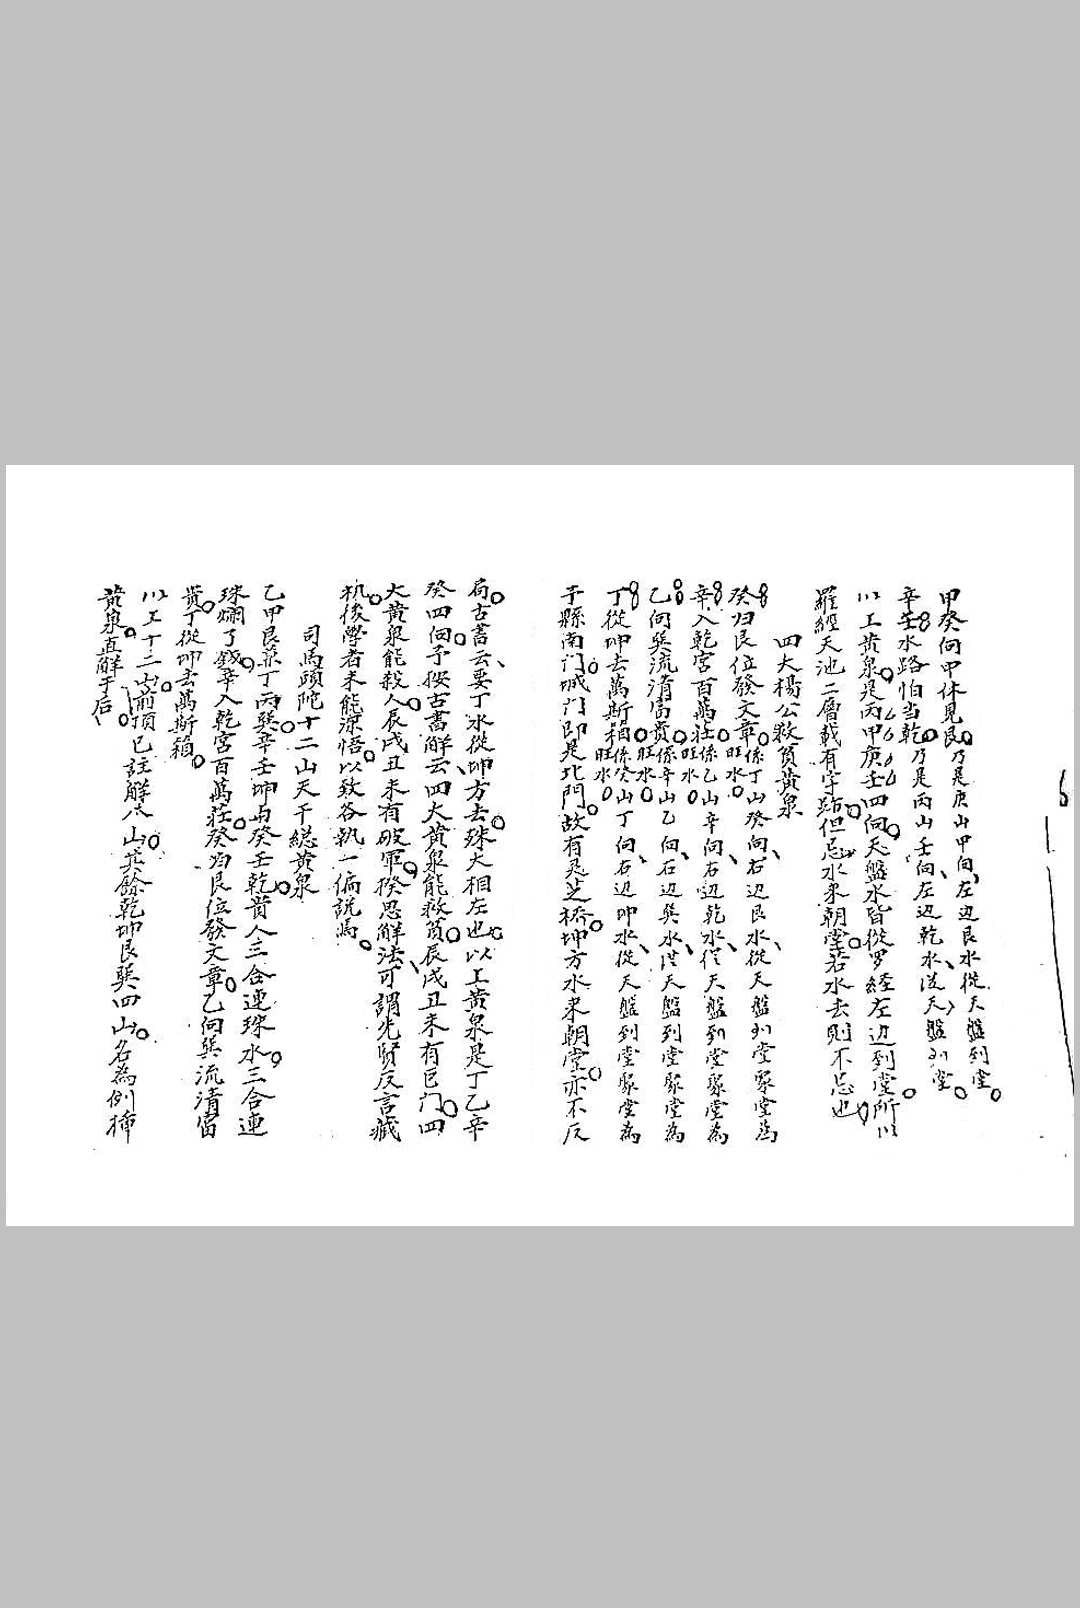 甲癸向甲休見艮乃是庚山甲向左边艮水從天盤到堂
辛壬水路怕当乾乃是丙山壬向左边乾水從天盤到堂
以上黄泉是丙甲庚壬四向天盤水皆從罗經左边到堂所以
羅經天池二層載有字跡但忌水來朝堂若水去則不忌也
四大楊公救貧黄泉
癸归艮位發文章係丁山癸向右辺艮水從天盤到堂聚堂為旺水
辛入乾宮百萬莊係乙山辛向右辺乾水從天盤到堂聚堂為旺水
乙向巽流清富貴係辛山乙向右辺巽水從天盤到堂聚堂為旺水
丁從坤去萬斯箱係癸山丁向右辺坤水從天盤到堂聚堂為旺水
于縣南门城门即是北門故有芝橋坤方水來朝堂亦不反
局古書云要丁水從坤方去殊大相左也以上黄泉是丁乙辛
癸四向予按古書解云四大黄泉能救貧辰戌丑未有巨门四
大黄泉能殺人辰戌丑未有破軍揆思解法可謂先賢反言藏
机後學者未能深悟以致各執一偏說焉
司馬頭陀十二山天干總黄泉
乙甲艮兼丁丙巽辛壬坤与癸壬乾貴人三合連珠水三合連
珠爛了錢辛入乾宮百萬莊癸归艮位發文章乙向巽流清富
貴丁從坤去萬斯箱
以上十二山前項已註解八山其餘乾坤艮巽四山名為例捕
黄泉直解于后